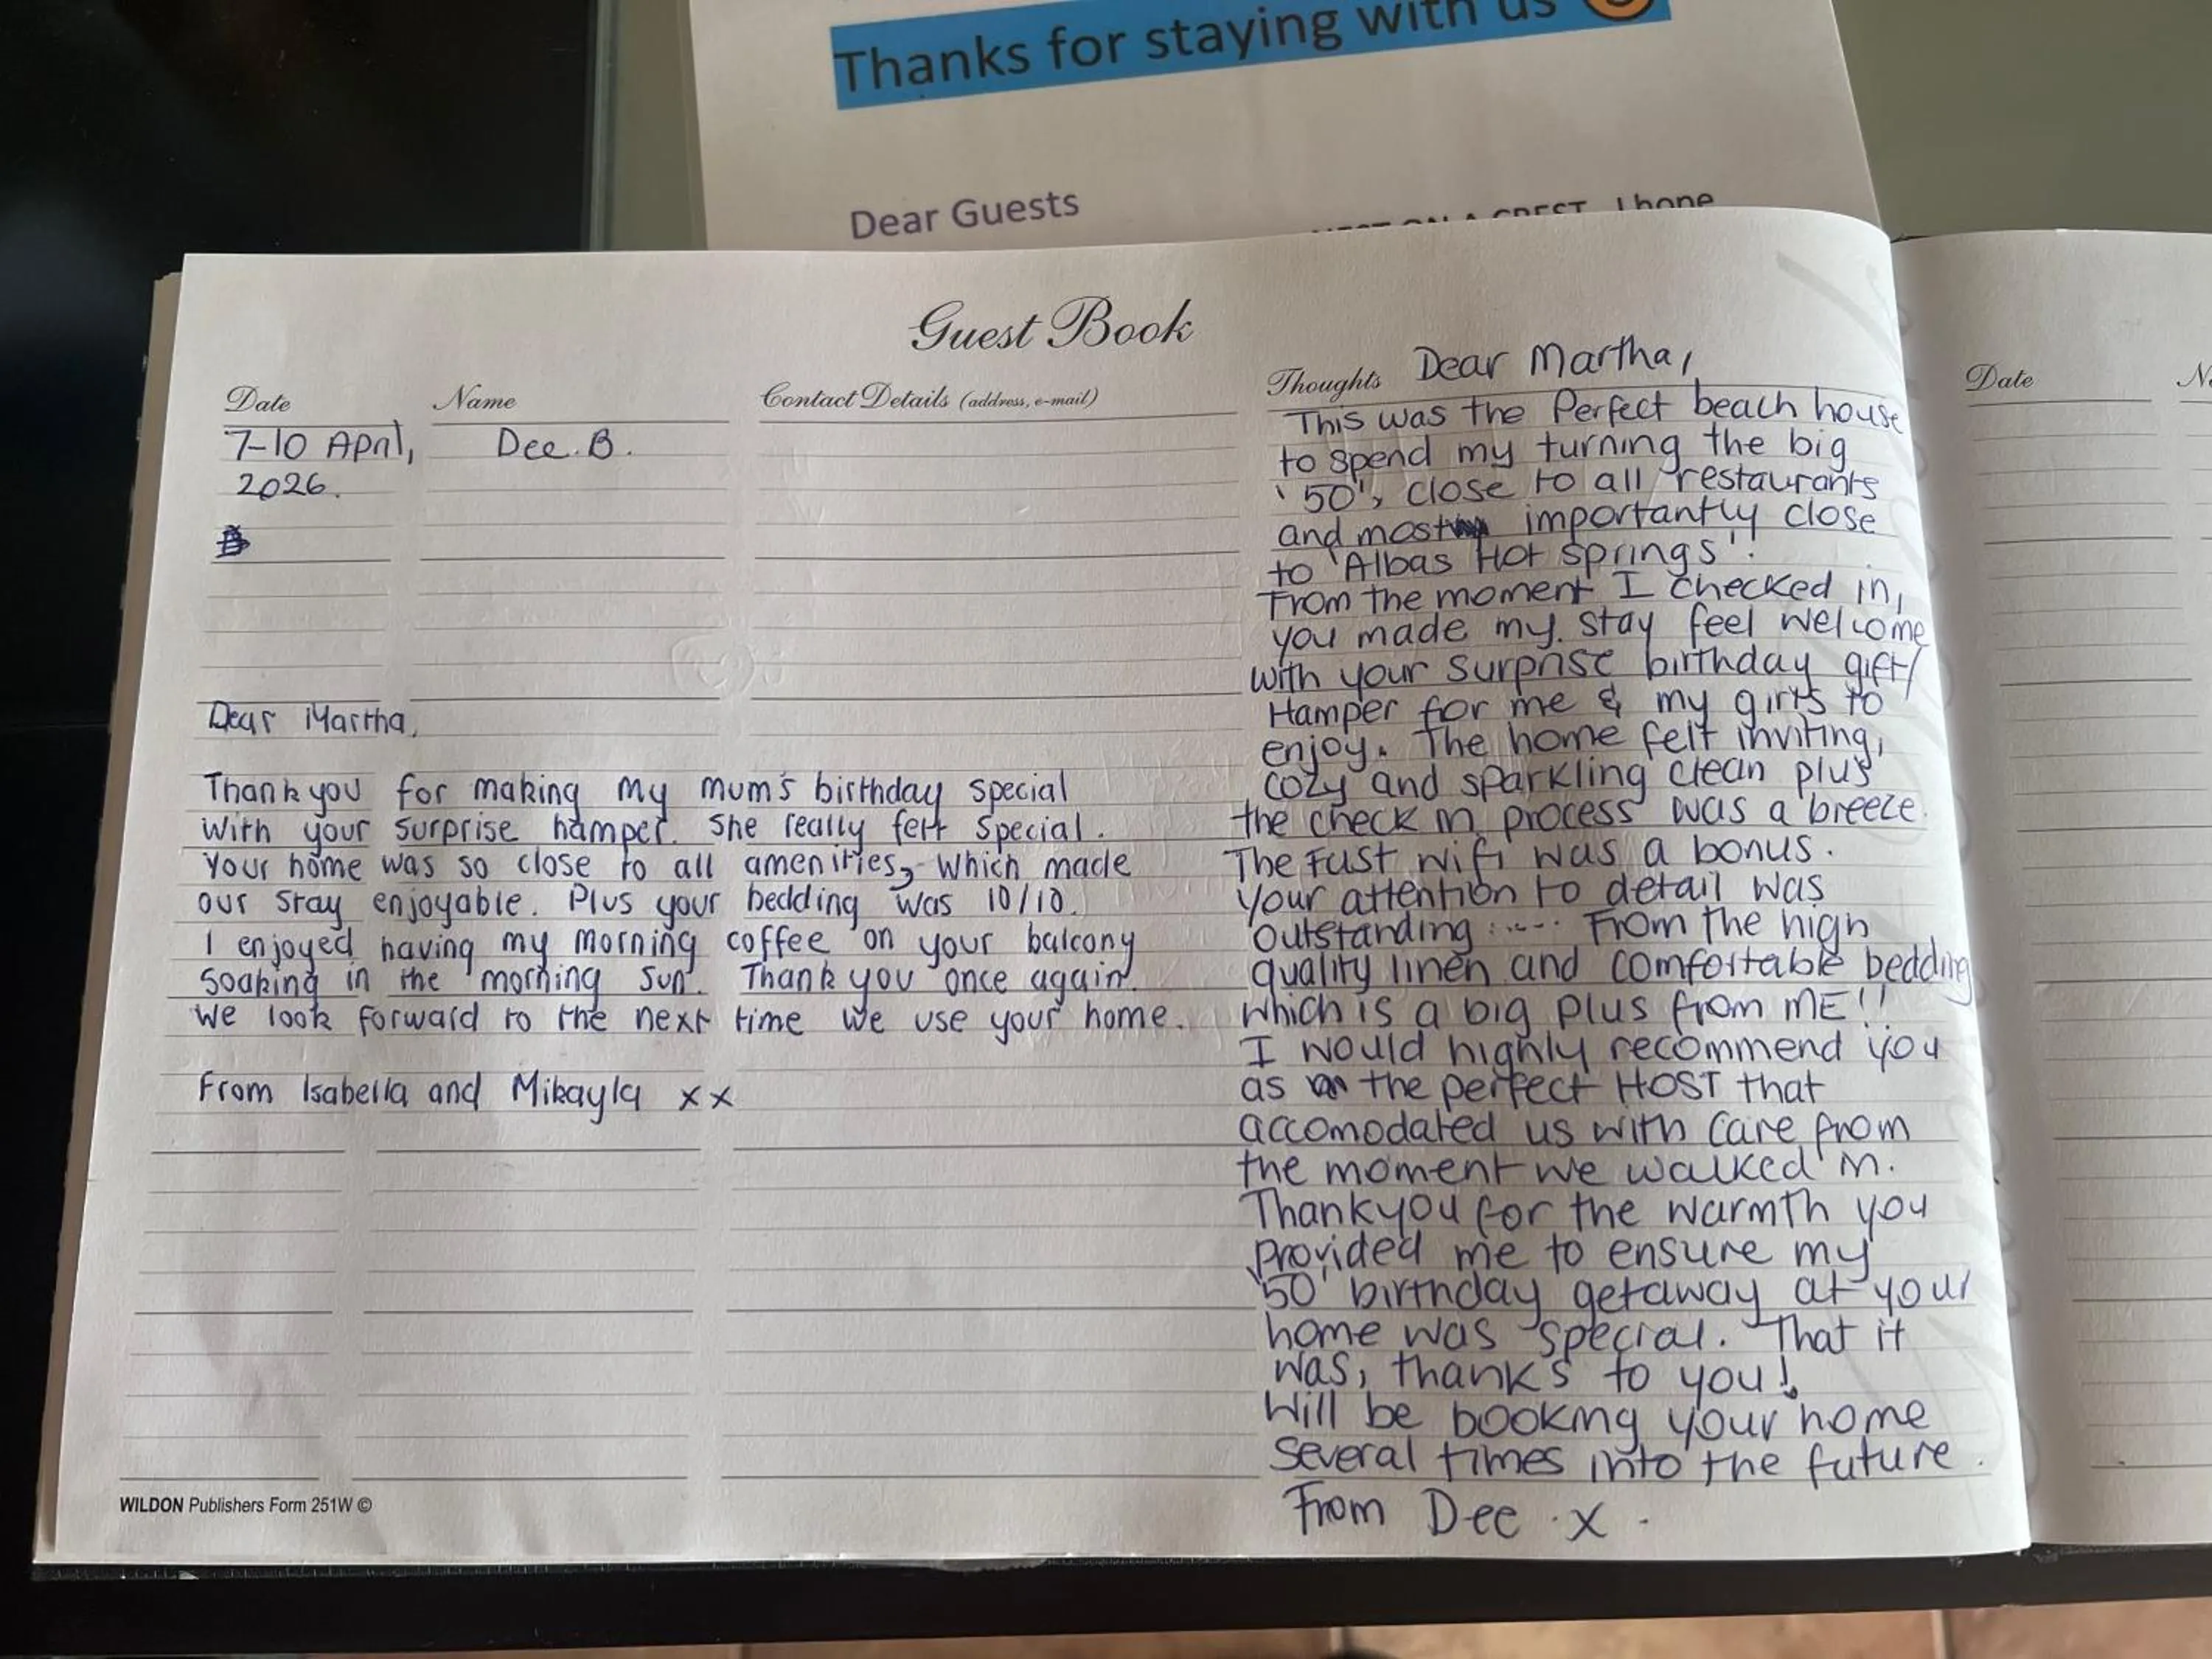 Thanks for staying with us
Dear Guests
A CREST I hope
Guest Book
Date
Name
Contact Details (address, e-mail)
Thoughts
7-10 April,
2026.
Dee. B.
Dear Martha,
Thankyou for making my mum's birthday special
with your surprise hamper. She really felt special.
Your home was so close to all amenities, which made
our stay enjoyable. Plus your bedding was 10/10.
I enjoyed having my morning coffee on your balcony
soaking in the morning sun. Thank you once again.
We look forward to the next time we use your home.
From Isabella and Mikayla xx
WILDON Publishers Form 251W ©
Dear Martha,
This was the Perfect beach house
to spend my turning the big
'50', close to all restaurants
and most importantly close
to 'Albas Hot Springs'.
From the moment I checked in,
you made my stay feel welcome
with your surprise birthday gift/
Hamper for me & my girls to
enjoy. The home felt inviting,
cozy and sparkling clean plus
the check in process was a breeze.
The Fast wifi was a bonus.
Your attention to detail was
outstanding ..... From the high
quality linen and comfortable bedding
which is a big plus from ME!!
I would highly recommend you
as the perfect HOST that
accomodated us with care from
the moment we walked in.
Thankyou for the warmth you
provided me to ensure my
'50' birthday getaway at your
home was special. That it
was, thanks to you!
Will be booking your home
several times into the future.
From Dee x.
Date